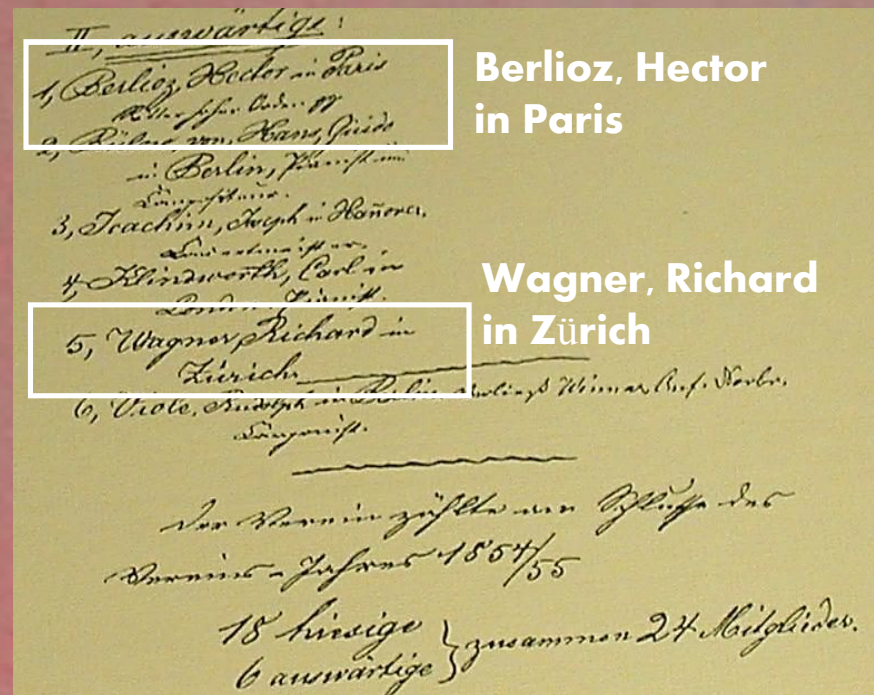 II, auswärtige:
1, Berlioz, Hector in Paris
Ritter hoher Orden pp
2, Bülow, von, Hans, Guido
in Berlin, Pianist und
Componist.
3, Joachim, Joseph in Hañover.
Concertmeister.
4, Klindworth, Carl in
London, Pianist.
5, Wagner, Richard in
Zürich
6, Viole, Rudolph in Berlin
Componist.
Der Verein zählte am Schlusse des
Vereins-Jahres 1854/55
18 hiesige
6 auswärtige } zusammen 24 Mitglieder.
Berlioz, Hector
in Paris
Wagner, Richard
in Zürich